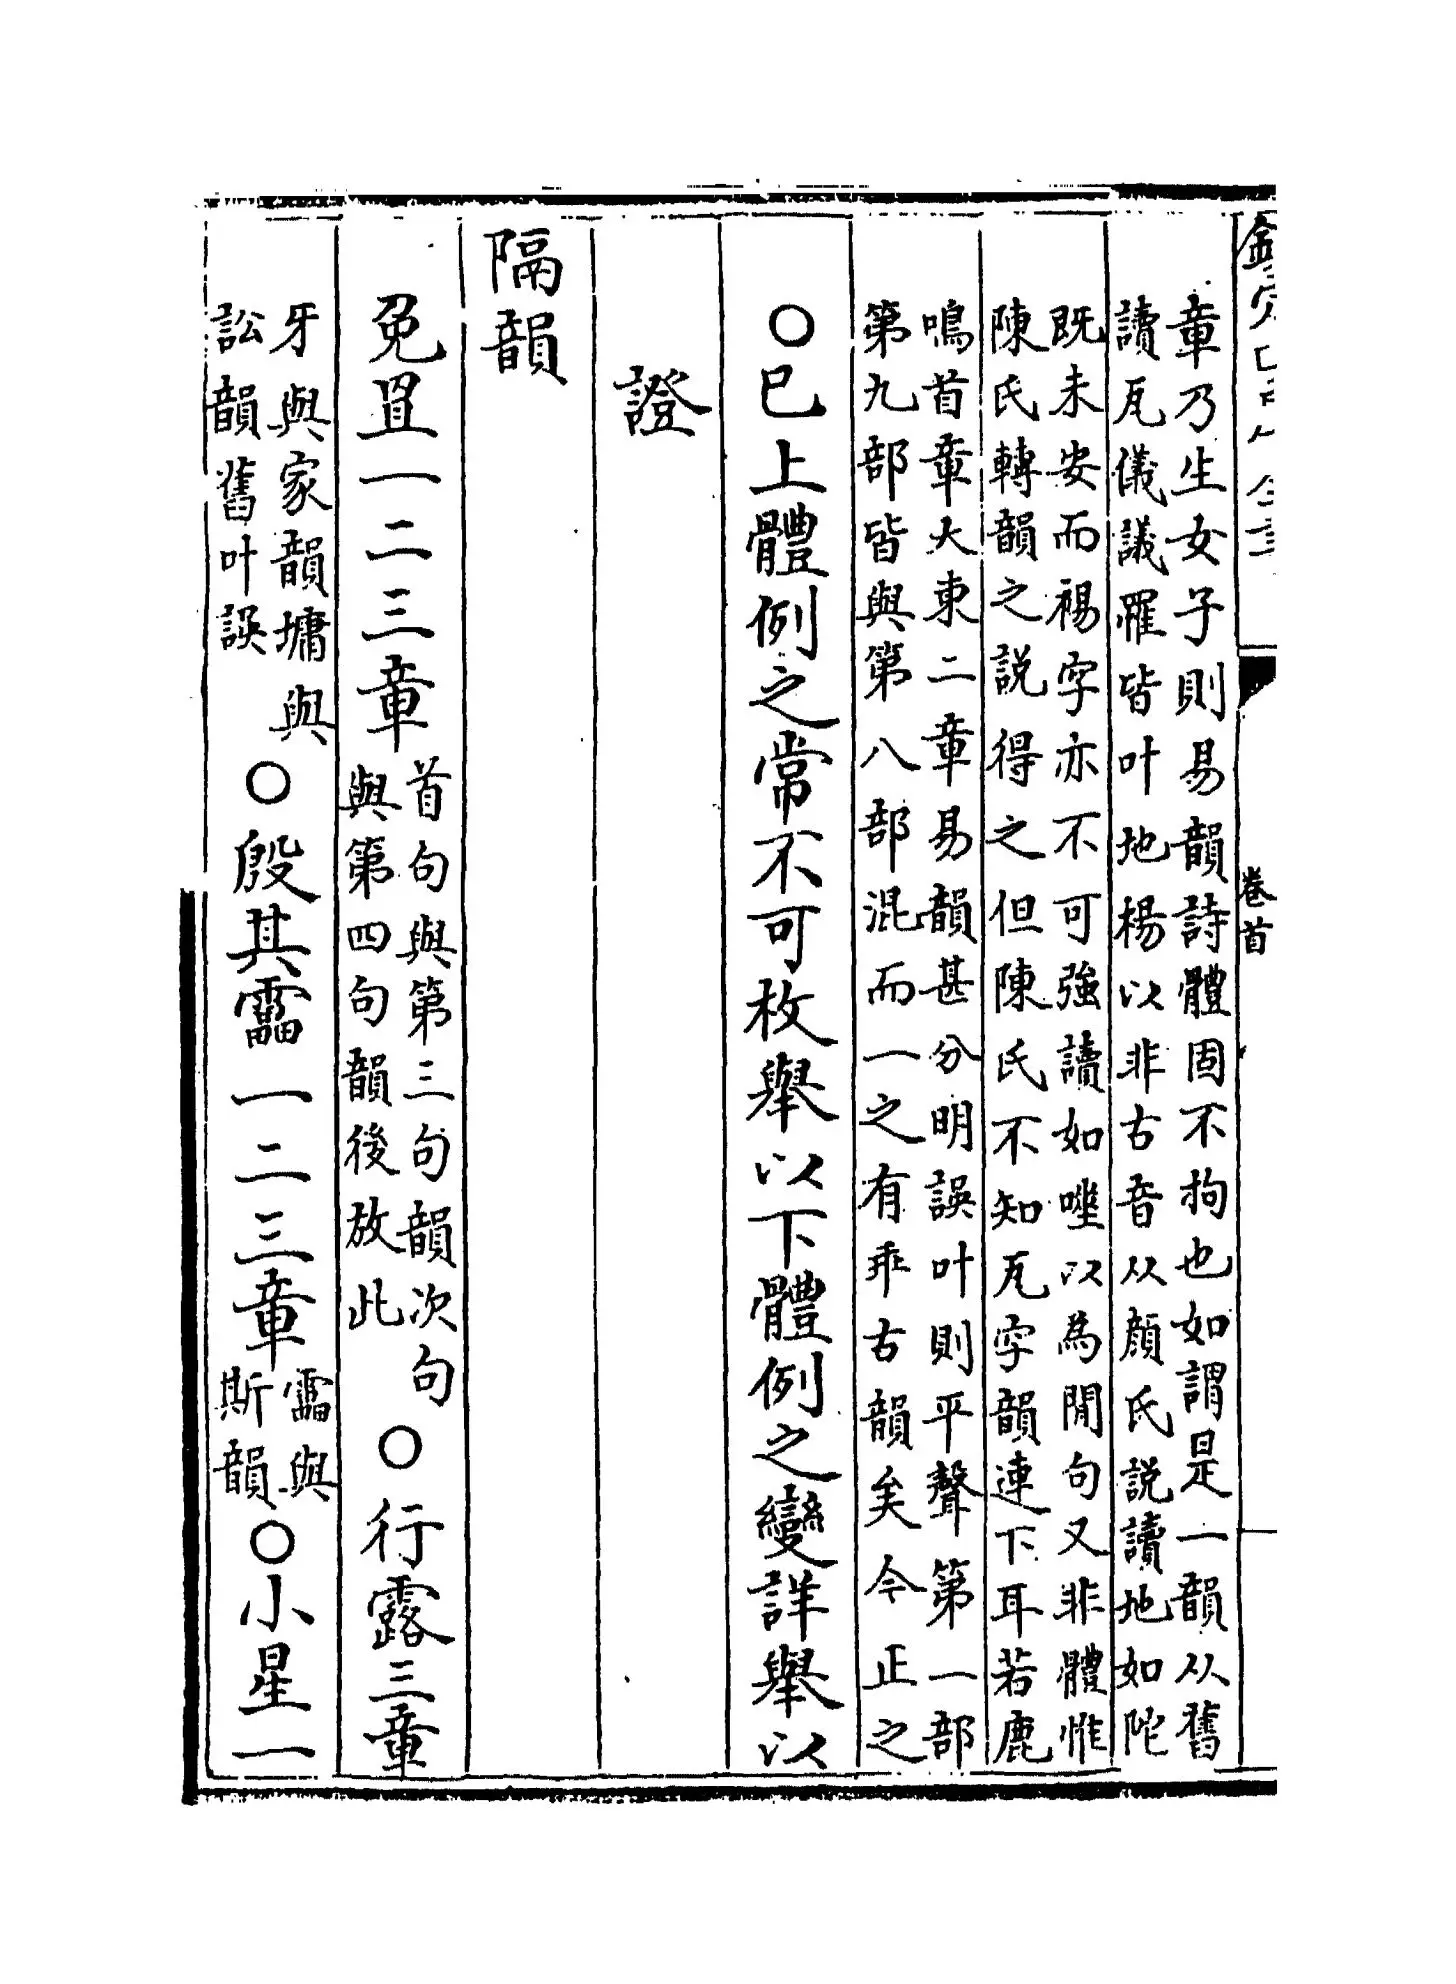 章乃生女子則易韻詩體固不拘也如謂是一韻從舊
讀瓦儀議罹皆叶地楊以非古音從顔氏説讀地如陀
既未安而裼字亦不可強讀如唑以為閒句又非體惟
陳氏轉韻之説得之但陳氏不知瓦字韻連下耳若鹿
鳴首章大東二章易韻甚分明誤叶則平聲第一部
第九部皆與第八部混而一之有乖古韻矣今正之
○已上體例之常不可枚舉以下體例之變詳舉以
證
隔韻
兔罝一二三章
首句與第三句韻次句
與第四句韻後放此
○行露三章
牙與家韻墉與
訟韻舊叶誤
○殷其靁一二三章
靁與
斯韻
○小星一
卷首